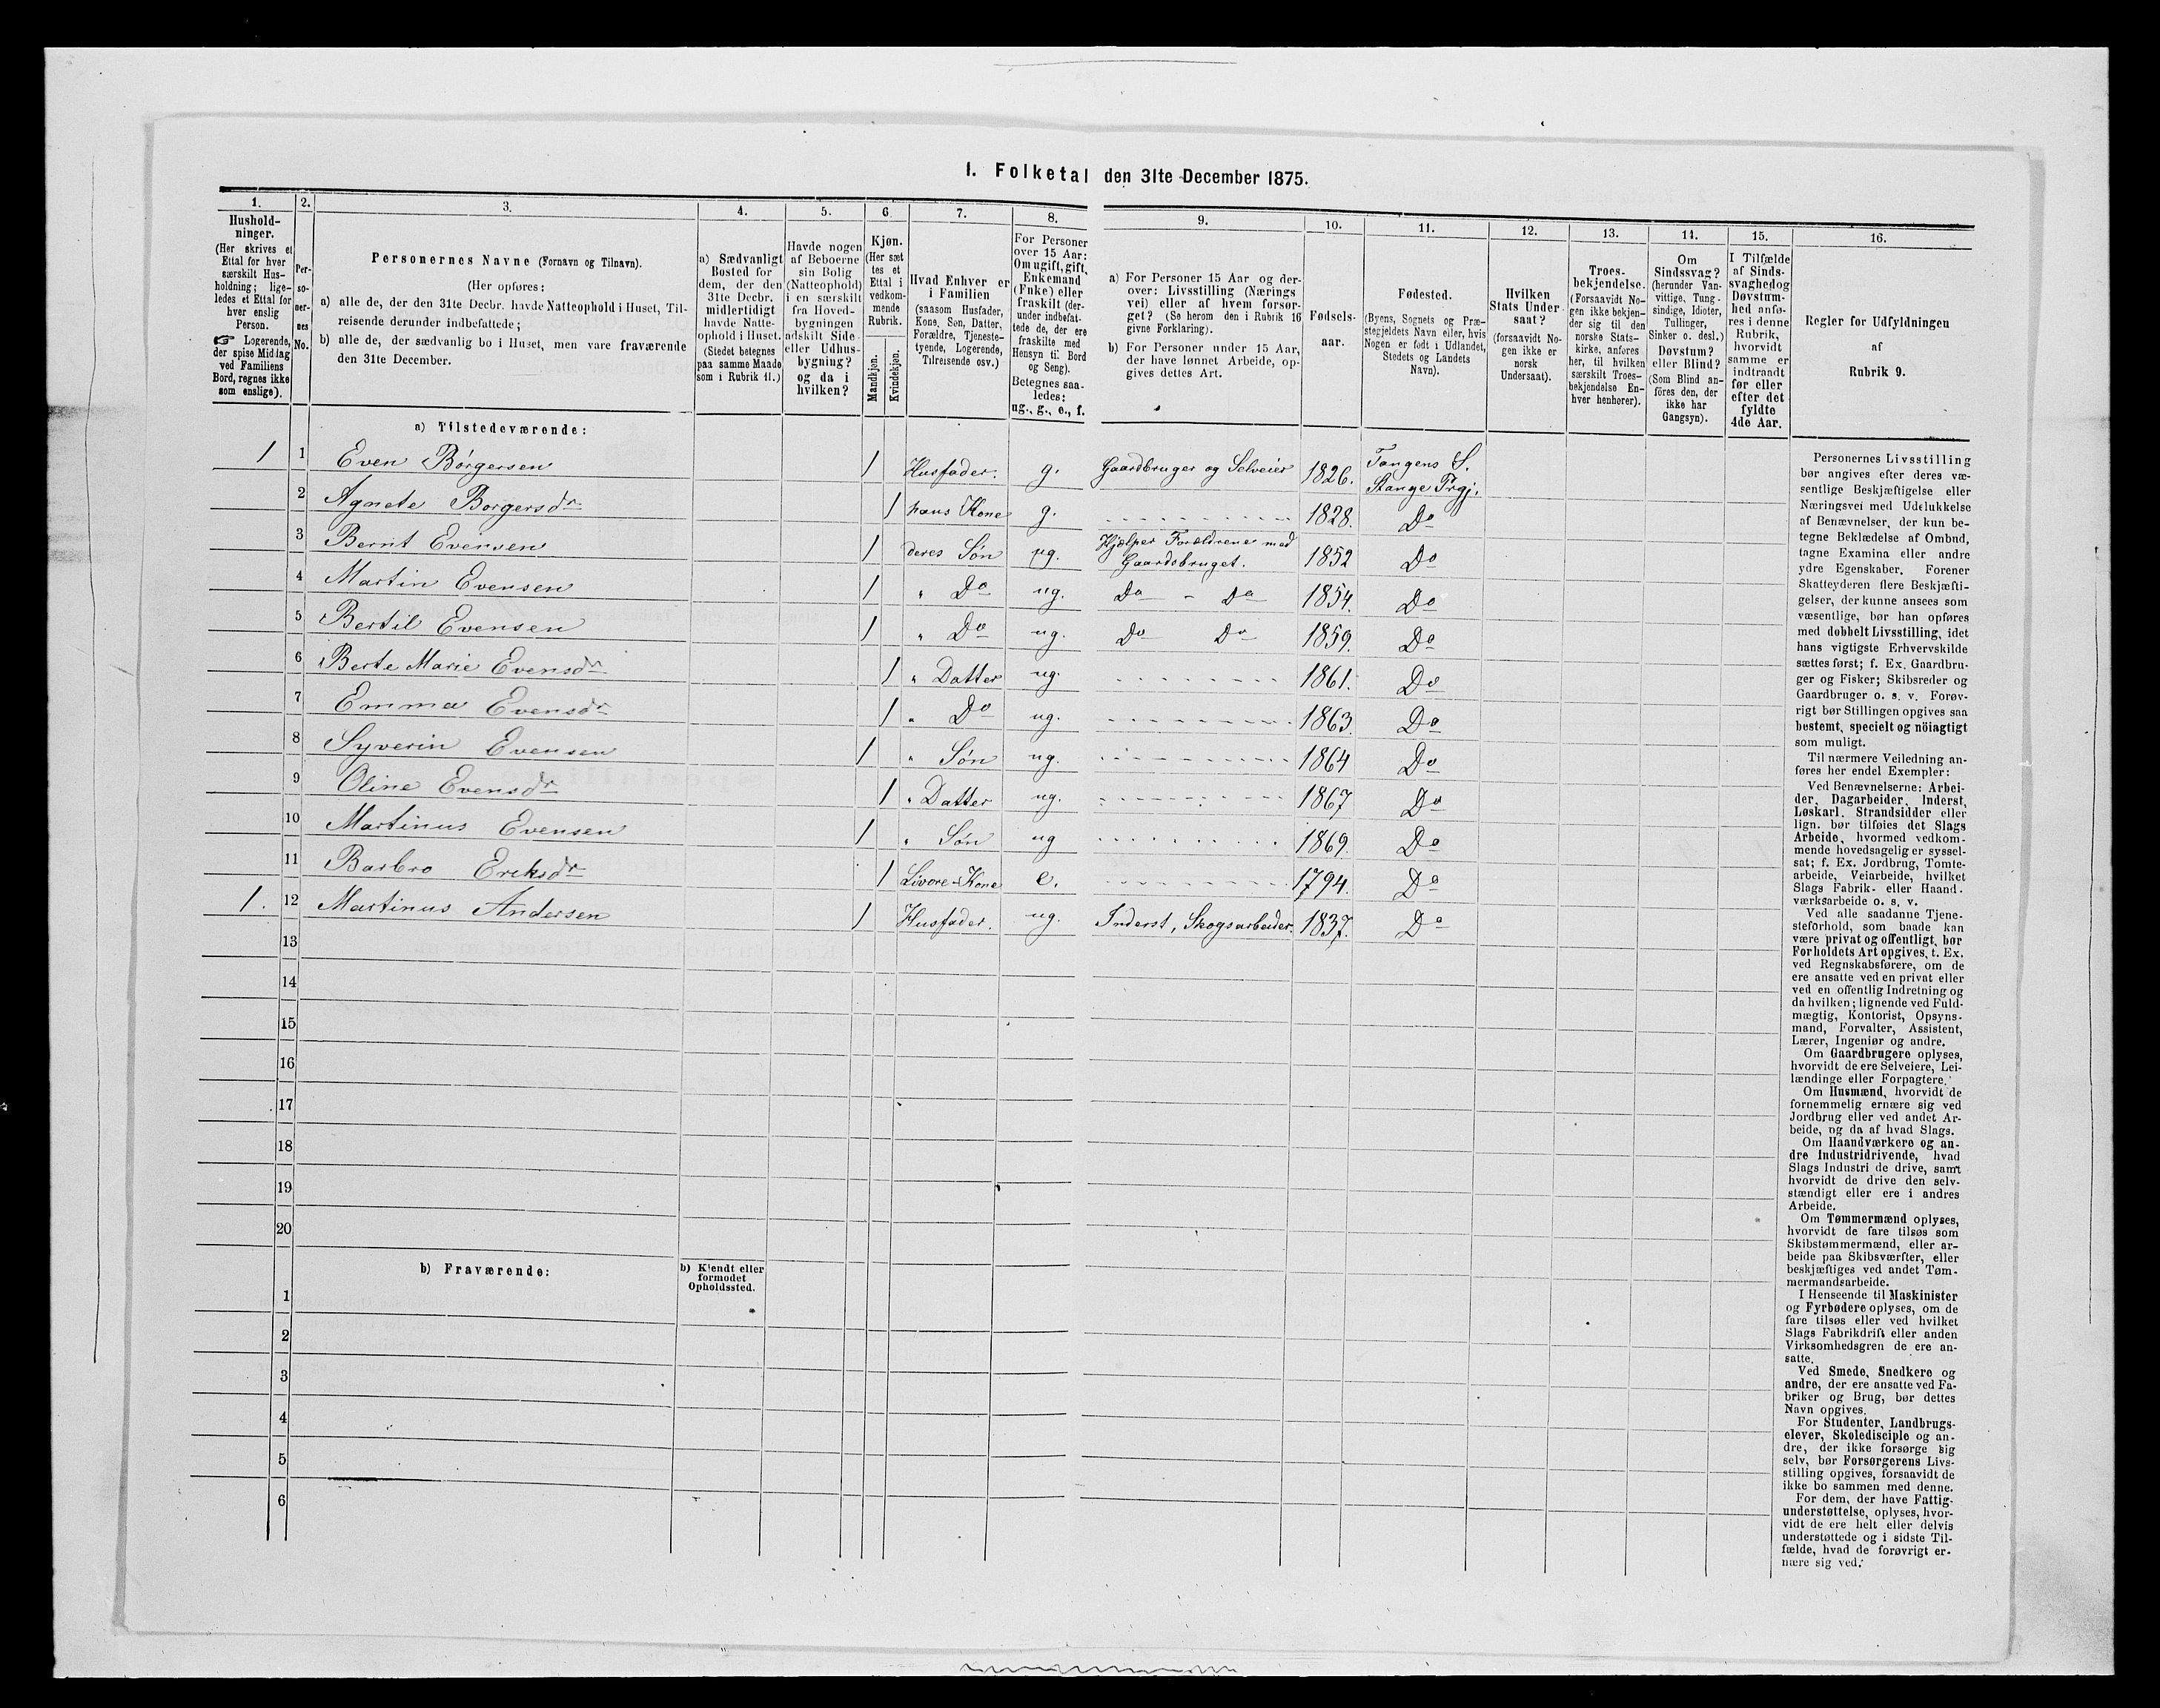 I. Folketal den 31te December 1875.
1.
Hushold-
ninger.
(Her skrives et
Ettal for hver
særskilt Hus-
holdning; lige-
ledes et Ettal for
hver enslig
Person.
☞ Logerende,
der spise Middag
ved Familiens
Bord, regnes ikke
som enslige).
2.
Per-
so-
ner-
nes
No.
3.
Personernes Navne (Fornavn og Tilnavn).
(Her opføres:
a) alle de, der den 31te Decbr. havde Natteophold i Huset, Til-
reisende derunder indbefattede;
b) alle de, der sædvanlig bo i Huset, men vare fraværende
den 31te December.
4.
a) Sædvanligt
Bosted for
dem, der den
31te Decbr.
midlertidigt
havde Natte-
ophold i Huset.
(Stedet betegnes
paa samme Maade
som i Rubrik 11.)
5.
Havde nogen
af Beboerne
sin Bolig
(Natteophold)
i en særskilt
fra Hoved-
bygningen
adskilt Side-
eller Udhus-
bygning?
og da i
hvilken?
6.
Kjøn.
(Her sæt
tes et
Ettal i
vedkom-
mende
Rubrik.
Mandkjøn.
Kvindekjøn.
7.
Hvad Enhver er
i Familien
(saasom Husfader,
Kone, Søn, Datter,
Forældre, Tjeneste-
tyende, Logerende,
Tilreisende osv.)
8.
For Personer
over 15 Aar:
Om ugift, gift,
Enkemand
(Enke) eller
fraskilt (der-
under indbefat-
tede de, der ere
fraskilte med
Hensyn til Bord
og Seng).
Betegnes saa-
ledes:
ug., g., e., f.
9.
a) For Personer 15 Aar og der-
over: Livsstilling (Nærings
vei) eller af hvem forsør-
get? (Se herom den i Rubrik 16
givne Forklaring).
b) For Personer under 15 Aar,
der have lønnet Arbeide, op-
gives dettes Art.
10.
Fødsels-
aar.
11.
Fødested.
(Byens, Sognets og Præ-
stegjeldets Navn eller, hvis
Nogen er født i Udlandet,
Stedets og Landets
Navn).
12.
Hvilken
Stats Under-
saat?
(forsaavidt No-
gen ikke er
norsk
Undersaat).
13.
Troes-
bekjendelse.
(Forsaavidt No-
gen ikke bekjen-
der sig til den
norske Stats-
kirke, anføres
her, til hvilken
særskilt Troes-
bekjendelse En-
hver henhører).
14.
Om
Sindssvag?
(herunder Van-
vittige, Tung-
sindige, Idioter,
Tullinger,
Sinker o. desl.)
Døvstum?
eller Blind?
(Som Blind an-
föres den, der
ikke har
Gangsyn).
15.
I Tilfælde
af Sinds-
svaghed og
Døvstum-
hed anfø-
res i denne
Rubrik,
hvorvidt
samme er
indtraadt
før eller
efter det
fyldte
4de Aar.
16.
Regler for Udfyldningen
af
Rubrik 9.
a) Tilstedeværende:
1 1 Even Börgersen 1 Husfader. g. Gaardbruger og Selveier 1826. Tangens S. Stange Prgj.
2 Agnete Borgersdr 1 hans Kone g. 1828. Do
3 Bernt Evensen 1 deres Søn ug. Hjelper Forældrene med Gaardsbruget. 1852 Do
4 Martin Evensen 1 " Do ug. Do - Do 1854. Do
5 Bertil Evensen 1 " Do ug. Do Do 1859. Do
6 Berte Marie Evensdr 1 " Datter ug. 1861. Do
7 Emma Evensdr 1 " Do ug. 1863. Do
8 Syverin Evensen 1 " Søn ug. 1864 Do
9 Oline Evensdr 1 " Datter ug. 1867 Do
10 Martinus Evensen 1 " Søn ug 1869. Do
11 Barbro Eriksdr 1 Livøre-Kone e. 1794. Do
1. 12 Martinus Andersen 1 Husfader. ug. Inderst, Skogsarbeider. 1837. Do
13
14
15
16
17
18
19
20
b) Fraværende:
b) Kjendt eller
formodet
Opholdssted.
1
2
3
4
5
6
Personernes Livsstilling
bør angives efter deres væ-
sentlige Beskjæftigelse eller
Næringsvei med Udelukkelse
af Benævnelser, der kun be-
tegne Beklædelse af Ombud,
tagne Examina eller andre
ydre Egenskaber. Forener
Skatteyderen flere Beskjæfti-
gelser, der kunne ansees som
væsentlige, bør han opføres
med dobbelt Livsstilling, idet
hans vigtigste Erhvervskilde
sættes først; f. Ex. Gaardbru-
ger og Fisker; Skibsreder og
Gaardbruger o. s. v. Forøv-
rigt bør Stillingen opgives saa
bestemt, specielt og nöiagtigt
som muligt.
Til nærmere Veiledning an-
føres her endel Exempler:
Ved Benævnelserne: Arbei-
der, Dagarbeider, Inderst,
Løskarl, Strandsidder eller
lign. bør tilføies det Slags
Arbeide, hvormed vedkom-
mende hovedsagelig er syssel-
sat; f. Ex. Jordbrug, Tomte-
arbeide, Veiarbeide, hvilket
Slags Fabrik- eller Haand-
værksarbeide o. s. v.
Ved alle saadanne Tjene-
steforhold, som baade kan
være privat og offentligt, bør
Forholdets Art opgives, t. Ex.
ved Regnskabsførere, om de
ere ansatte ved en privat eller
ved en offentlig Indretning og
da hvilken; lignende ved Fuld-
mægtig, Kontorist, Opsyns-
mand, Forvalter, Assistent,
Lærer, Ingeniør og andre.
Om Gaardbrugere oplyses,
hvorvidt de ere Selveiere, Lei-
lændinge eller Forpagtere.
Om Husmænd, hvorvidt de
fornemmelig ernære sig ved
Jordbrug eller ved andet Ar-
beide, og da af hvad Slags.
Om Haandværkere og an-
dre Industridrivende, hvad
Slags Industri de drive, samt
hvorvidt de drive den selv-
stændigt eller ere i andres
Arbeide.
Om Tømmermænd oplyses,
hvorvidt de fare tilsøs som
Skibstømmermænd, eller ar-
beide paa Skibsværfter, eller
beskjæftiges ved andet Tøm-
mermandsarbeide.
I Henseende til Maskinister
og Fyrbødere oplyses, om de
fare tilsøs eller ved hvilket
Slags Fabrikdrift eller anden
Virksomhedsgren de ere an-
satte.
Ved Smede, Snedkere og
andre, der ere ansatte ved Fa-
briker og Brug, bør dettes
Navn opgives.
For Studenter, Landbrugs-
elever, Skoledisciple og an-
dre, der ikke forsørge sig
selv, bør Forsørgerens Livs-
stilling opgives, forsaavidt de
ikke bo sammen med denne.
For dem, der have Fattig-
understøttelse, oplyses, hvor-
vidt de ere helt eller delvis
understøttede og i sidste Til-
fælde, hvad de forøvrigt er-
nære sig ved.